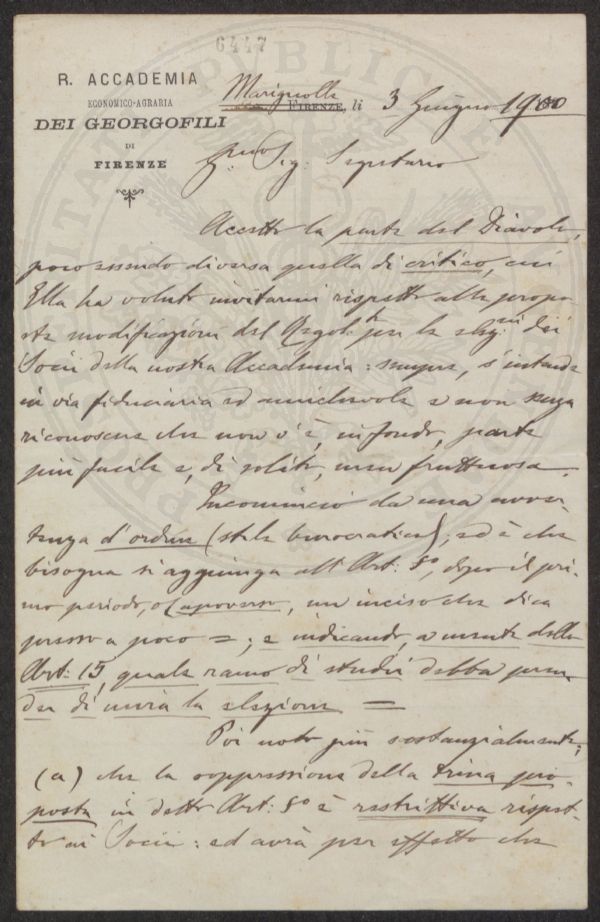 6447
R. ACCADEMIA
ECONOMICO-AGRARIA
DEI GEORGOFILI
DI
FIRENZE
Marignolle
FIRENZE, li 3 Giugno 1900
Sig. Segretario
Accetto la parte del Diavolo,
poco essendo diversa quella di critico, cui
Ella ha voluto invitarmi rispetto alle propo
ste modificazioni del Regol. per le elez.ni dei
Socii della nostra Accademia: sempre, s'intende
in via fiduciaria ed amichevole e non senza
riconoscere che non v'è, in fondo, parte
più facile e, di solito, men fruttuosa.
Incomincio da una avver
tenza d'ordine (stile burocratico); ed è che
bisogna si aggiunga all'Art: 8°, dopo il pri
mo periodo, o capoverso, un inciso che dica
presso a poco =; e indicando, a mente dello
Art: 15, quale ramo di studii debba pren
der di mira la elezione =
Poi noto più sostanzialmente;
(a) che la soppressione della trina pro
posta in detto Art: 8° è restrittiva rispet
to ai Socii: ed avrà per effetto che